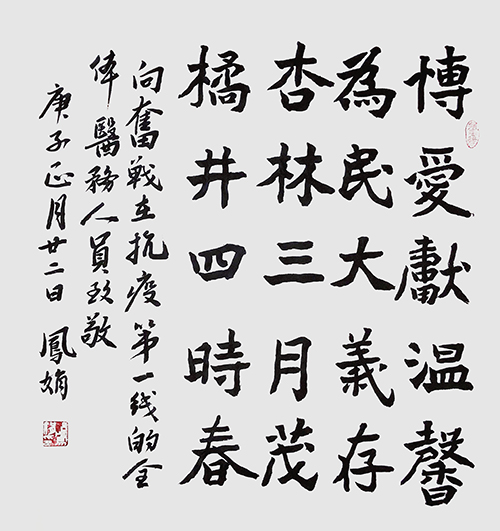 博愛獻温馨
為民大義存
杏林三月茂
橘井四時春
向奮戰在抗疫第一线的全
体醫務人員致敬
庚子正月廿二日 鳳娟